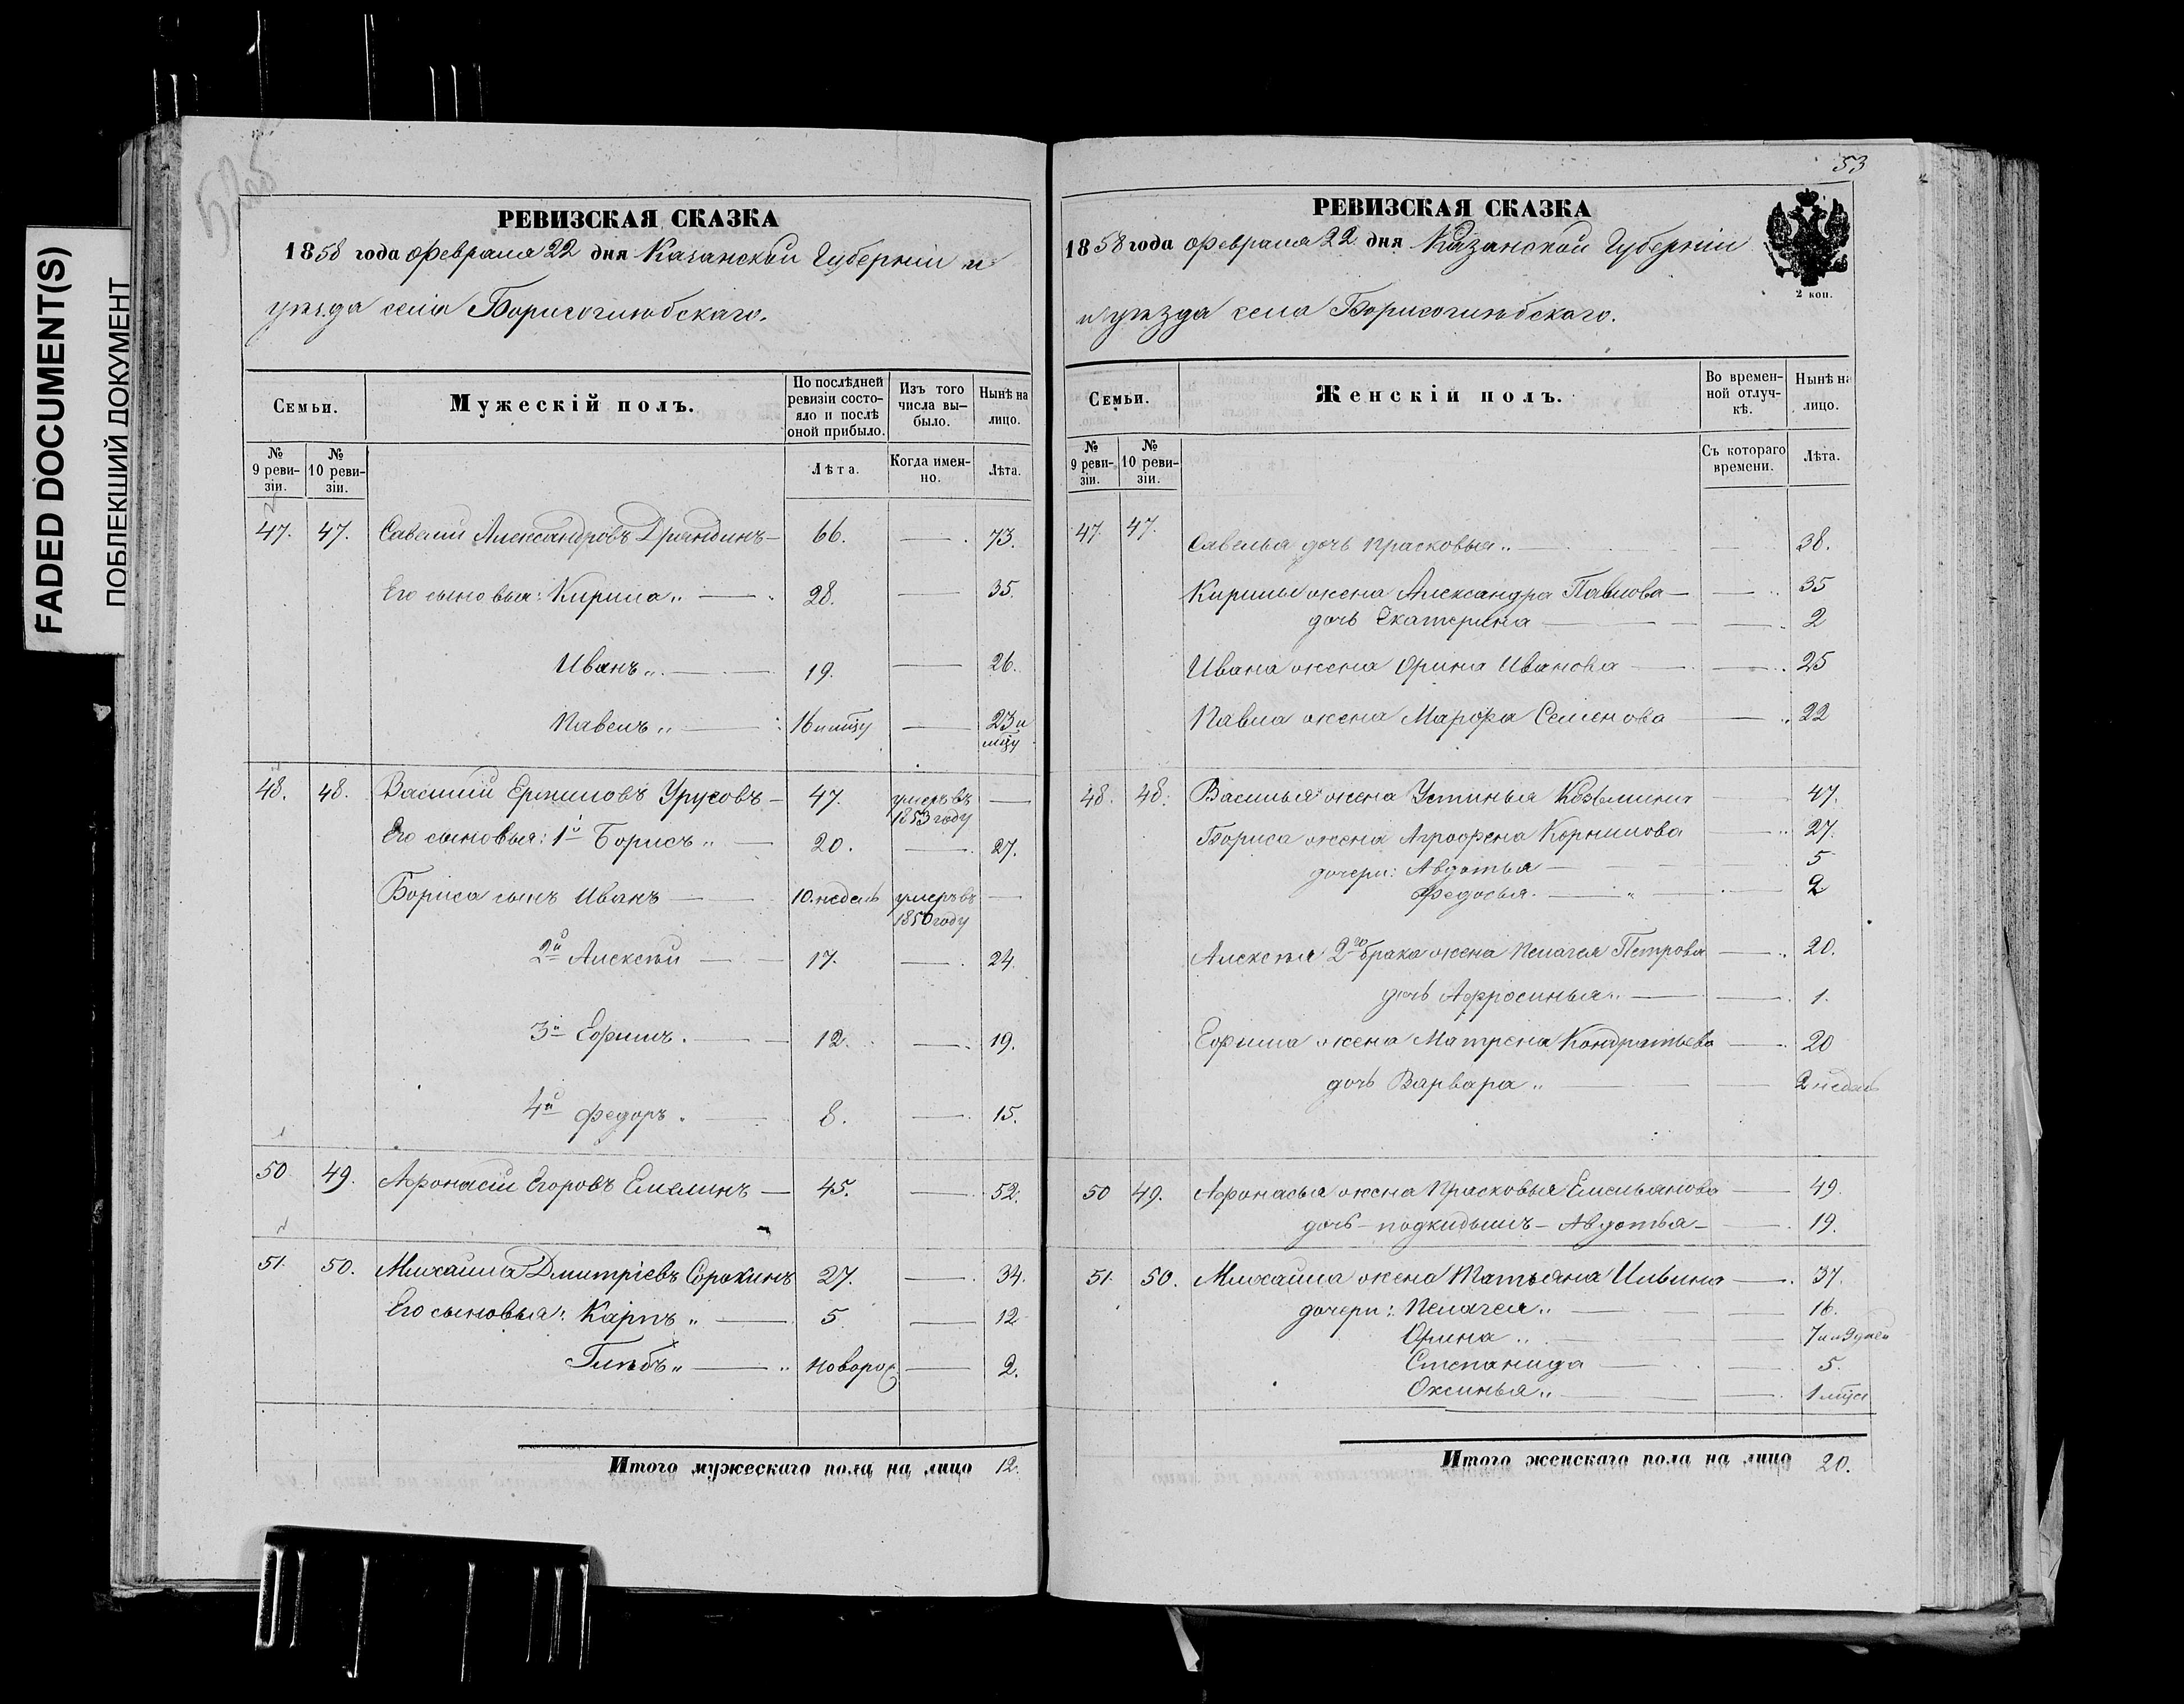 FADED DOCUMENT(S)
ПОБЛЕКШИЙ ДОКУМЕНТ
РЕВИЗСКАЯ СКАЗКА
1858 года Февраля 22 дня Казанской Губерніи и
уѣзда села Борисоглѣбскаго.
Семьи.
Мужескій полъ.
По послѣдней ревизіи состояло и послѣ оной прибыло.
Изъ того числа выбыло.
Нынѣ на лицо.
№ 9 ревизіи.
№ 10 ревизіи.
Лѣта.
Когда именно.
Лѣта.
47. 47. Савелій Александровъ Дряндинъ — 66. — 73.
Его сыновья: Кирила „ — 28. — 35.
Иванъ „ — 19. — 26.
Павелъ „ — 16 и мѣсу — 23 и
мѣсу
48. 48. Василій Ермиловъ Урусовъ — 47. умеръ въ —
1853 году
Его сыновья: 1й Борисъ „ — 20. — 27.
Бориса сынъ Иванъ — 10. недель умеръ въ —
1850 году
2й Алексѣй — 17. — 24.
3й Ефимъ. — 12. — 19.
4й Федоръ. — 8. — 15.
50 49. Афонасій Егоровъ Емелинъ — 45. — 52.
51. 50. Михаила Дмитріевъ Сорокинъ 27. — 34.
Его сыновья: Карпъ „ — 5. — 12
Глѣбъ „ — новорож — 2.
Итого мужескаго пола на лицо 12.
53
РЕВИЗСКАЯ СКАЗКА
1858 года Февраля 22 дня Казанской Губерніи
2 коп.
и уѣзда села Борисоглѣбскаго.
Семьи.
Женскій полъ.
Во временной отлучкѣ.
Нынѣ на лицо.
№ 9 ревизіи.
№ 10 ревизіи.
Съ котораго времени.
Лѣта.
47. 47. Савелья дочь Прасковья „ — 38.
Кирилы жена Александра Павлова — 35
дочь Екатерина — 2
Ивана жена Орина Иванова — 25
Павла жена Марфа Семенова — 22
48. 48. Василья жена Устинья Козьмина — 47.
Бориса жена Аграфена Корнилова — 27.
дочери: Авдотья — 5
Федосья. — 2
Алексѣя 2го брака жена Пелагея Петрова — 20.
дочь Афросинья „ — 1.
Ефима жена Матрена Кондратьева — 20
дочь Варвара „ — 2 недель
50 49. Афонасья жена Прасковья Емельянова — 49.
дочь — подкидышъ — Авдотья — 19.
51. 50. Михаила жена Татьяна Ильина — 37.
дочери: Пелагея „ — 16.
Орина „ — 7 и 9 дней
Степанида — 5.
Оксинья „ — 1 мѣся
Итого женскаго пола на лицо 20.